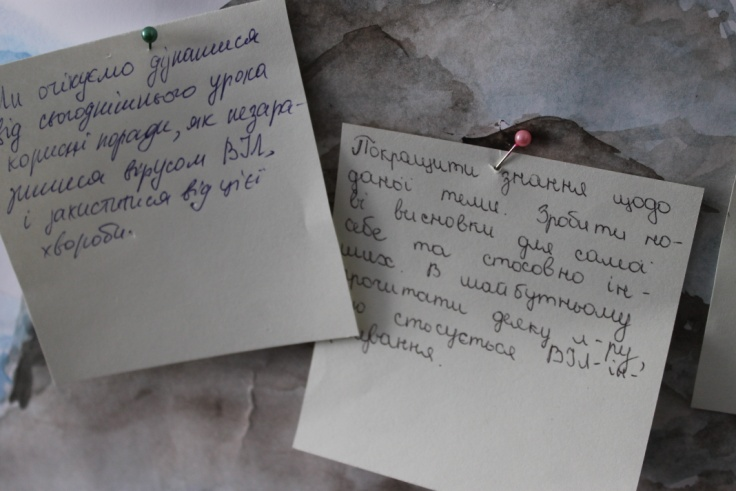 Ми очікуємо дізнатися
від сьогоднішнього урока
корисні поради, як незара-
зитися вірусом ВІЛ,
і захиститися від цієї
хвороби.
Покращити знання щодо
даної теми. Зробити но-
ві висновки для самої
себе та стосовно ін-
ших. В майбутньому
прочитати деяку л-ру,
що стосується ВІЛ-ін-
фікування.